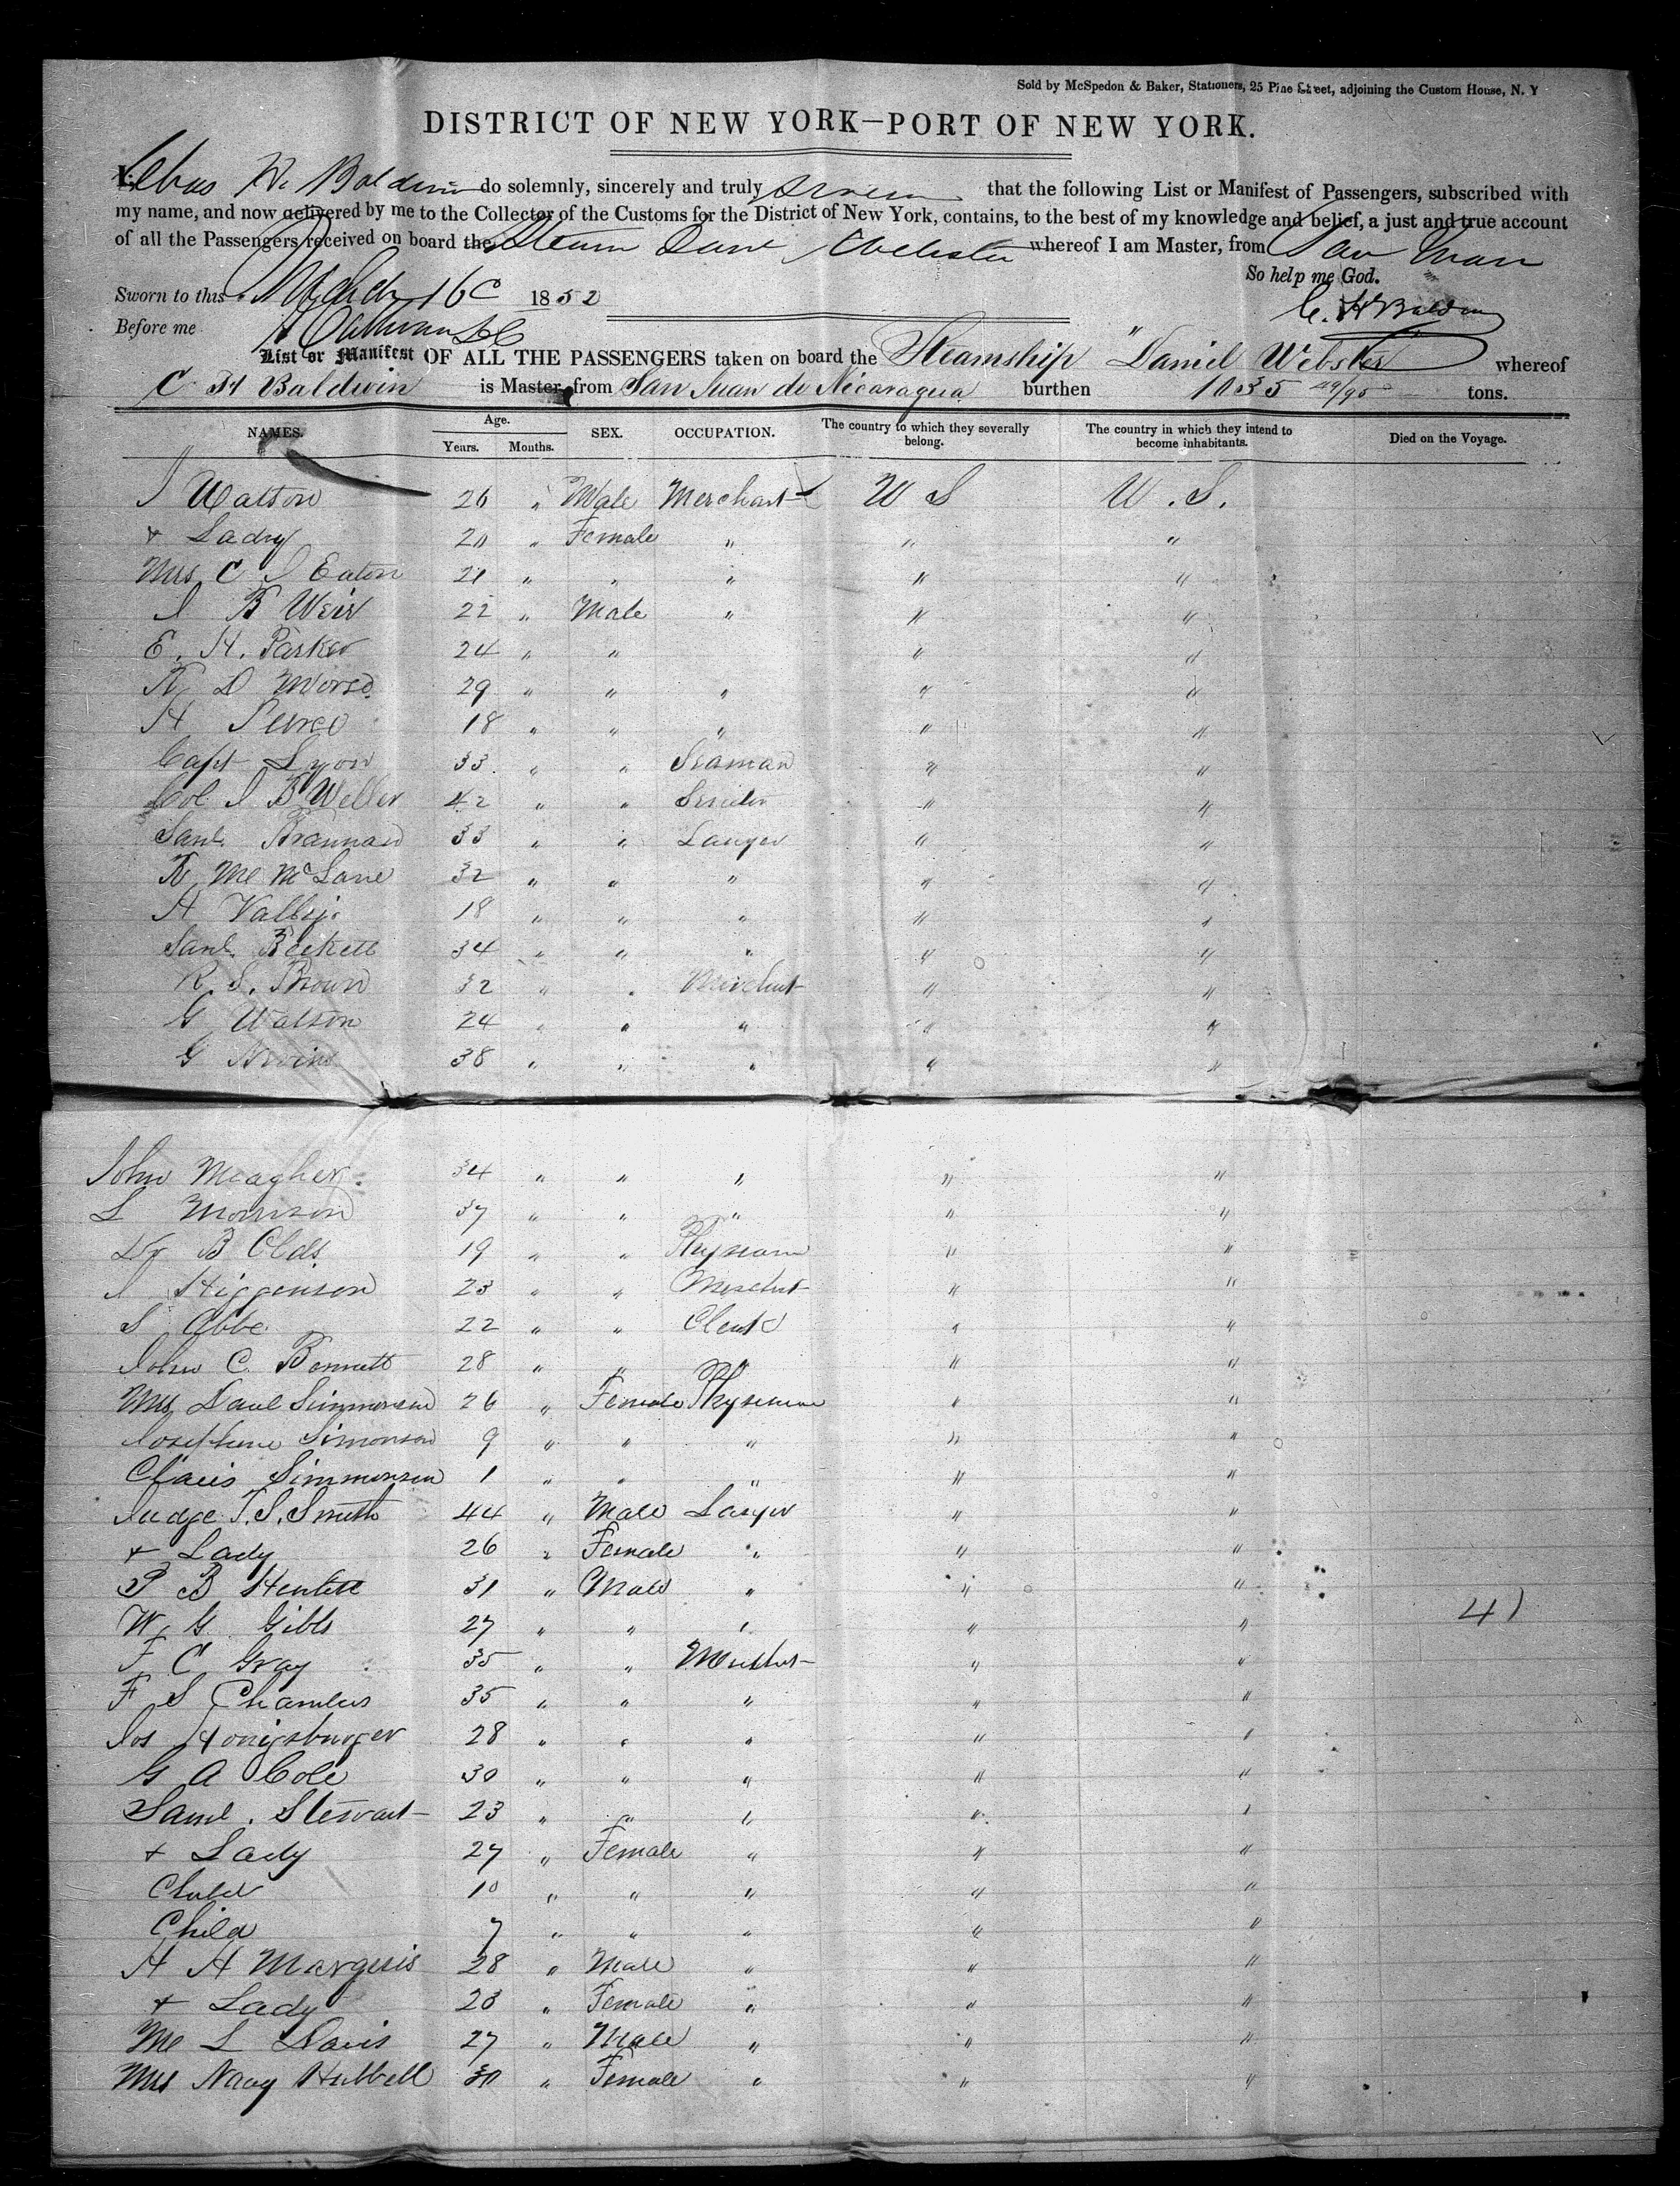 Sold by McSpedon & Baker, Stationers, 25 Pine Street, adjoining the Custom House, N. Y
DISTRICT OF NEW YORK—PORT OF NEW YORK.
I, Baldwin do solemnly, sincerely and truly that the following List or Manifest of Passengers, subscribed with
my name, and now delivered by me to the Collector of the Customs for the District of New York, contains, to the best of my knowledge and belief, a just and true account
of all the Passengers received on board the Steam Danl Webster whereof I am Master, from San Juan
So help me God.
Sworn to this March 16 1852
C. H Baldwin
Before me
List or Manifest OF ALL THE PASSENGERS taken on board the Steamship "Daniel Webster whereof
C H Baldwin is Master, from San Juan de Nicaragua burthen 1035 49/95 tons.
NAMES. Age. Years. Months. SEX. OCCUPATION. The country to which they severally belong. The country in which they intend to become inhabitants. Died on the Voyage.
J Watson 26 " Male Merchant U S U. S.
+ Lady 20 " Female " " "
Mrs C J Eaton 21 " " " " "
J B Weir 22 " Male " " "
E. H. Parker 24 " " " "
R D Morse 29 " " " " "
H 18 " " " " "
Capt Lyon 33 " " Seaman " "
Col J B Weller 42 " " " "
Saml. Brannan 33 " " Lawyer " "
R M McLane 32 " " " " "
A Vallejo 18 " " " " "
Saml. Beckett 34 " " " " "
R. S. Brown 32 " " Merchant " "
G Watson 24 " " " " "
G 38 " " " " "
John Meagher 34 " " " " "
L Morrison 37 " " " " "
Dr B Olds 19 " " Physcian " "
J Higgenson 23 " " Merchnt " "
S Abbe 22 " " Clerk " "
John C. Bennett 28 " " " " "
Mrs Danl Simmonson 26 " Female Physician " "
Josephine Simonson 9 " " " " "
Simmonson 1 " " " " "
Judge T. S. Smith 44 " Male Lawyer " "
+ Lady 26 " Female " " "
P B Hewlett 31 " Male " " "
W G Gibbs 27 " " " " "
41
F C Gray 35 " " Merchnt " "
F S Chambers 35 " " " " "
Jos Honigsburger 28 " " " " "
G A Cole 30 " " " " "
Saml. Stewart 23 " " " " "
+ Lady 27 " Female " " "
Child 10 " " " " "
Child 7 " " " " "
H H Marquis 28 " Male " " "
+ Lady 23 " Female " " "
M L Davis 27 " Male " " "
Mrs Nancy Hubbell 30 " Female " " "